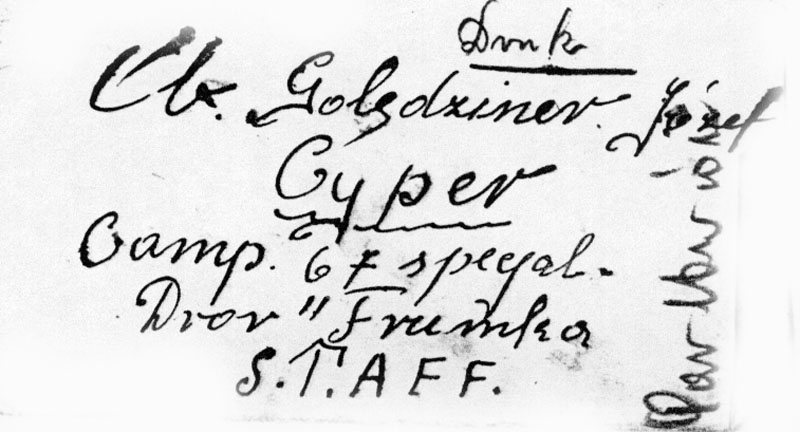 Druk
Ob. Golędziner Józef
Cyper
Camp. 67 specjal.
Dror "Frumka
S.T.A F F.
Par